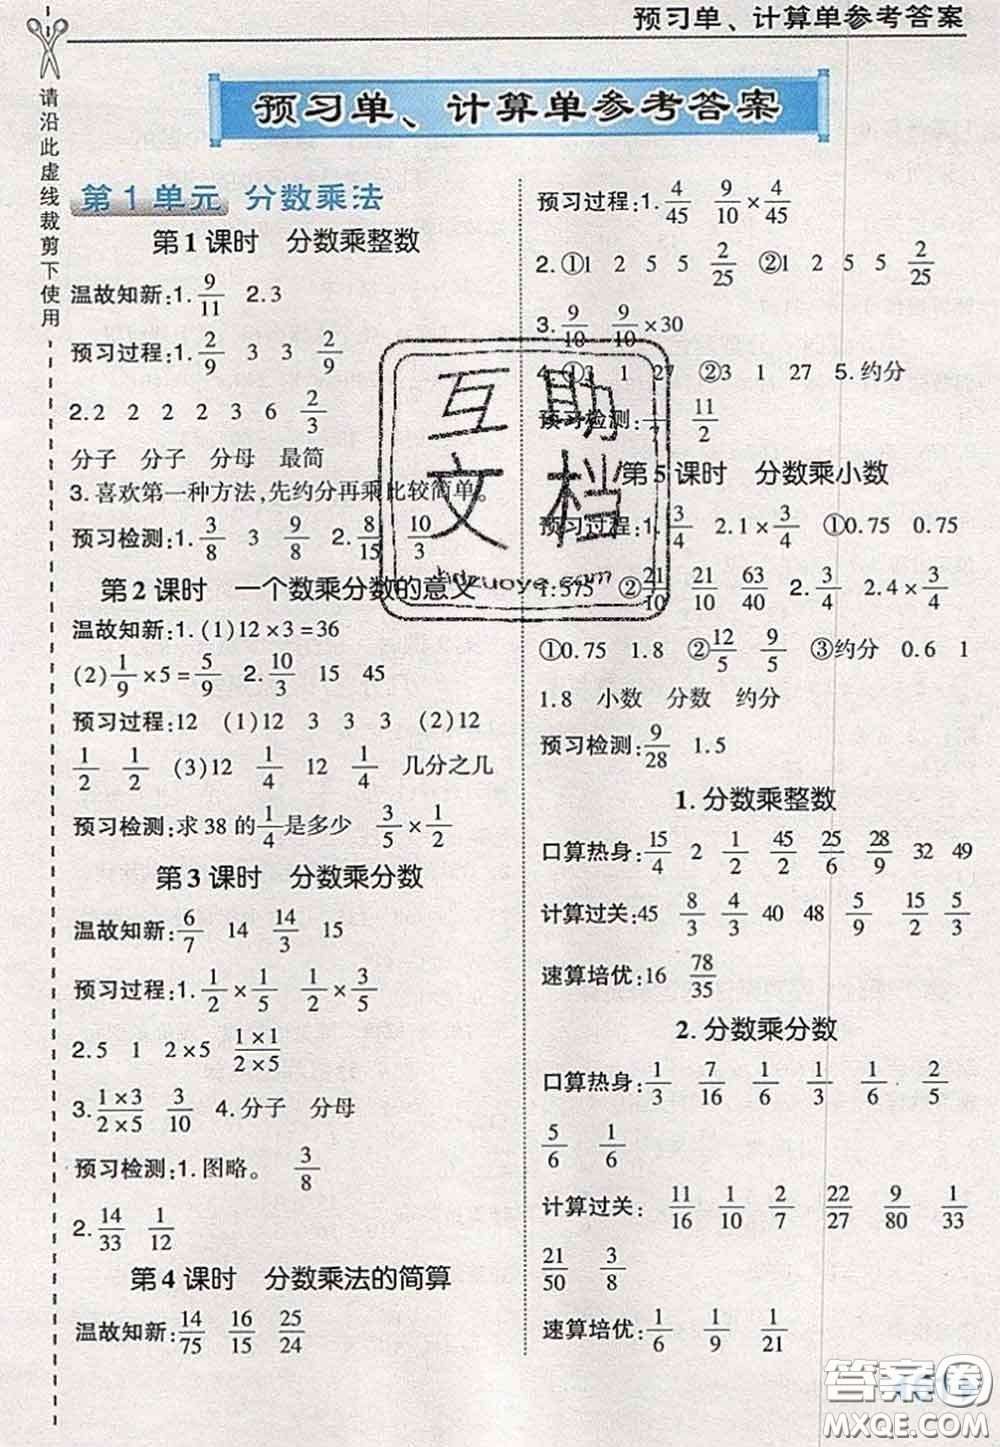 预习单、计算单参考答案
请沿此虚线裁剪下使用
预习单、计算单参考答案
第1单元 分数乘法
第1课时 分数乘整数
温故知新:1. 9/11 2.3
预习过程:1. 2/9 3 3 2/9
2.2 2 2 2 3 6 2/3
分子 分子 分母 最简
3.喜欢第一种方法,先约分再乘比较简单。
预习检测:1. 3/8 3 9/8 2. 8/15 10/3
第2课时 一个数乘分数的意义
温故知新:1.(1)12×3=36
(2) 1/9 ×5= 5/9 2. 10/3 15 45
预习过程:12 (1)12 3 3 3 (2)12
1/2 1/2 (3)12 1/4 12 1/4 几分之几
预习检测:求38的 1/4 是多少 3/5 × 1/2
第3课时 分数乘分数
温故知新: 6/7 14 14/3 15
预习过程:1. 1/2 × 1/5 1/2 × 3/5
2.5 1 2×5 1×1/2×5
3. 1×3/2×5 3/10 4.分子 分母
预习检测:1.图略。 3/8
2. 14/33 1/12
第4课时 分数乘法的简算
温故知新: 14/75 16/15 25/24
预习过程:1. 4/45 9/10 × 4/45
2.①1 2 5 5 2/25 ②1 2 5 5 2/25
3. 9/10 9/10 ×30
4.①3 1 27 ②3 1 27 5.约分
预习检测: 11/2
第5课时 分数乘小数
预习过程:1. 3/4 2.1× 3/4 ①0.75 0.75
1.575 ② 21/10 21/10 63/40 2. 3/4 2.4× 3/4
①0.75 1.8 ② 12/5 9/5 ③约分 0.6 1
1.8 小数 分数 约分
预习检测: 9/28 1.5
1.分数乘整数
口算热身: 15/4 2 1/2 45/2 25/6 28/9 32 49
计算过关:45 8/3 4/3 40 48 5/9 15/2 5/3
速算培优:16 78/35
2.分数乘分数
口算热身: 1/3 7/16 1/6 1/3 1/6 2/5
5/6 1/6
计算过关: 11/16 1/10 2/7 22/27 9/80 1/33
21/50 3/8
速算培优: 1/6 1/9 1/21
互助文档
hdzuoye.com
答案圈
MXQE.COM